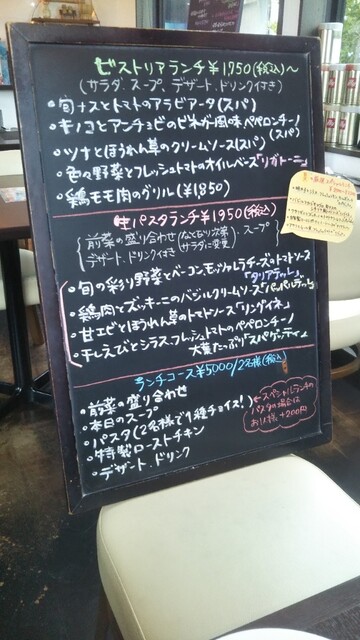 ビストリアランチ¥1750(税込)〜
(サラダ、スープ、デザート、ドリンク付き)
・旬ナスとトマトのアラビアータ(スパ)
・キノコとアンチョビのビネガー風味ペペロンチーノ
(スパ)
・ツナとほうれん草のクリームソース(スパ)
・色の野菜とフレッシュトマトのオイルベース「リガトーニ」
・鶏モモ肉のグリル(¥1850)
生パスタランチ¥1950(税込)
前菜の盛り合わせ(なくなり次第サラダに変更)、スープ
デザート、ドリンク付き
・旬の彩り野菜とベーコン、モッツァレラチーズのトマトソース
「タリアテッレ」
・鶏肉とズッキーニのバジルクリームソース「パッパルデッレ」
・甘エビとほうれん草のトマトソース「リングイネ」
・干しえびとシラス、フレッシュトマトのペペロンチーノ
大葉たっぷり「スパゲッティ」
ランチコース¥5000/2名様(税込)
・前菜の盛り合わせ
・本日のスープ
・パスタ(2名様で1種チョイス!)
←スペシャルランチの
パスタの場合は
お1人様+200円
・特製ローストチキン
・デザート、ドリンク